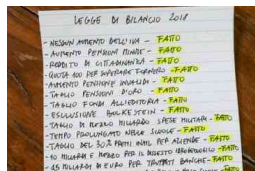 LEGGE DI BILANCIO 2018
- NESSUN AUMENTO DELL'IVA - FATTO
- AUMENTO PENSIONI MINIME - FATTO
- REDDITO DI CITTADINANZA - FATTO
- QUOTA 100 PER SUPERARE FORNERO - FATTO
- AUMENTO PENSIONE INVALIDI - FATTO
- TAGLIO PENSIONI D'ORO - FATTO
- TAGLIO FONDI ALL'EDITORIA - FATTO
- ESCLUSIONE BOLKESTEIN - FATTO
- TAGLIO DI MEZZO MILIARDO SPESE MILITARI - FATTO
- TEMPO PROLUNGATO NELLE SCUOLE - FATTO
- TAGLIO DEL 30% PREMI INAIL PER AZIENDE - FATTO
- 10 MILIARDI E MEZZO PER IL DISSESTO IDROGEOLOGICO - FATTO
- MILIARDI DI EURO PER TRUFFATI BANCHE - FATTO